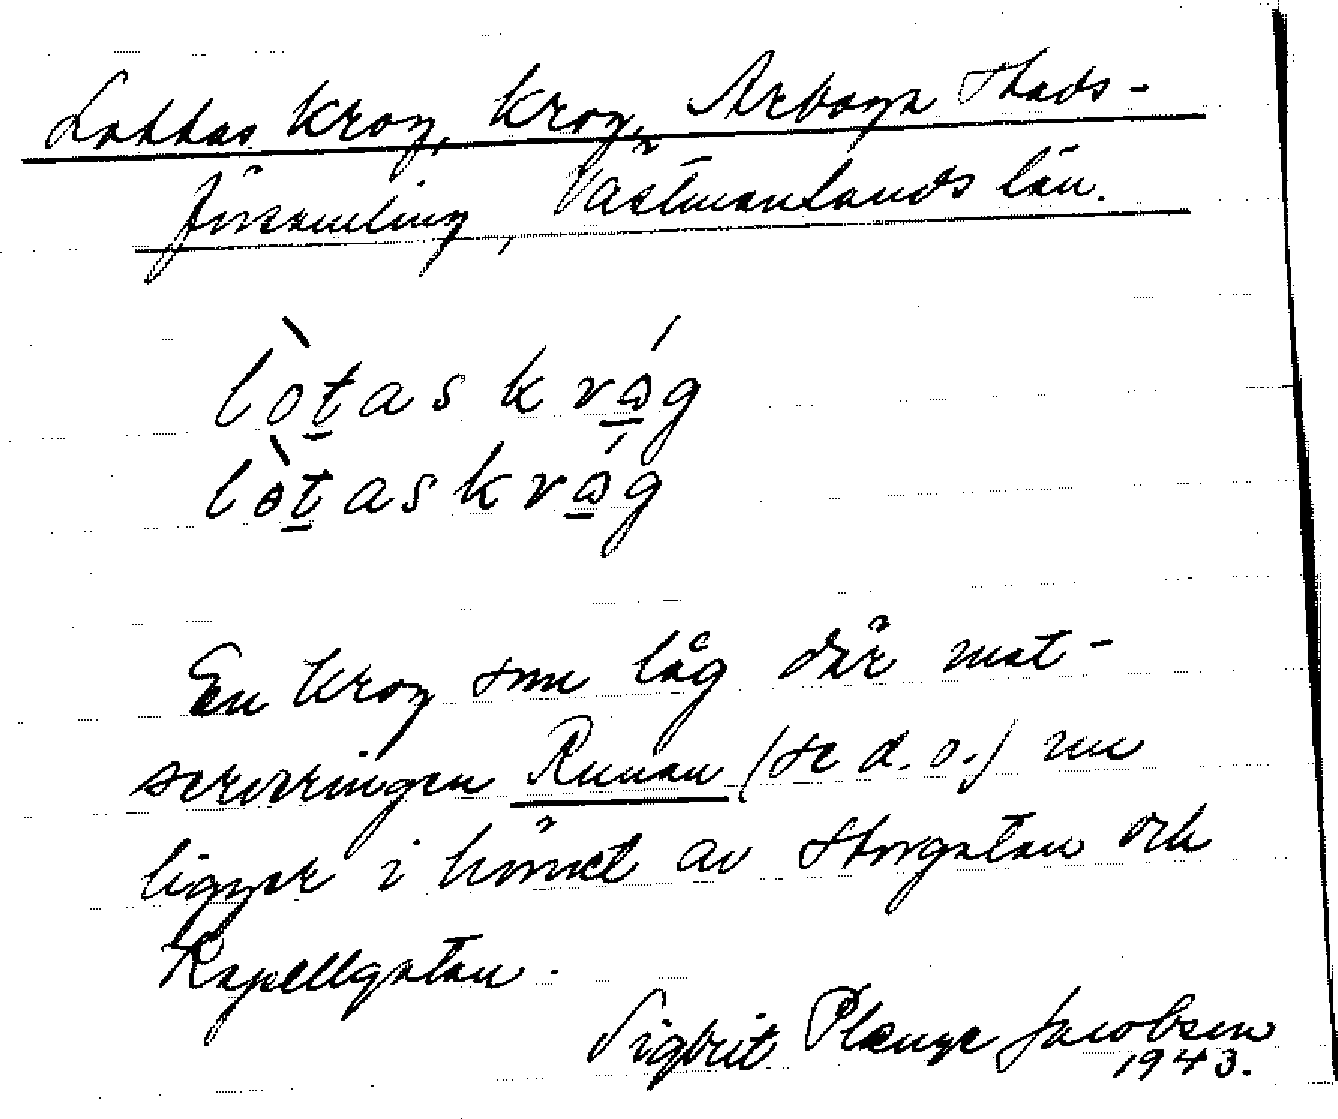 Lottas krog, krog, Arboga Stads-
församling, Västmanlands län.
lòtas kråg
lòtaskråg
En krog som låg där mat-
serveringen Runan (se d. o.) nu
ligger i hörnet av Storgatan och
Kapellgatan.
Sigbrit Plænge Jacobsen
1943.